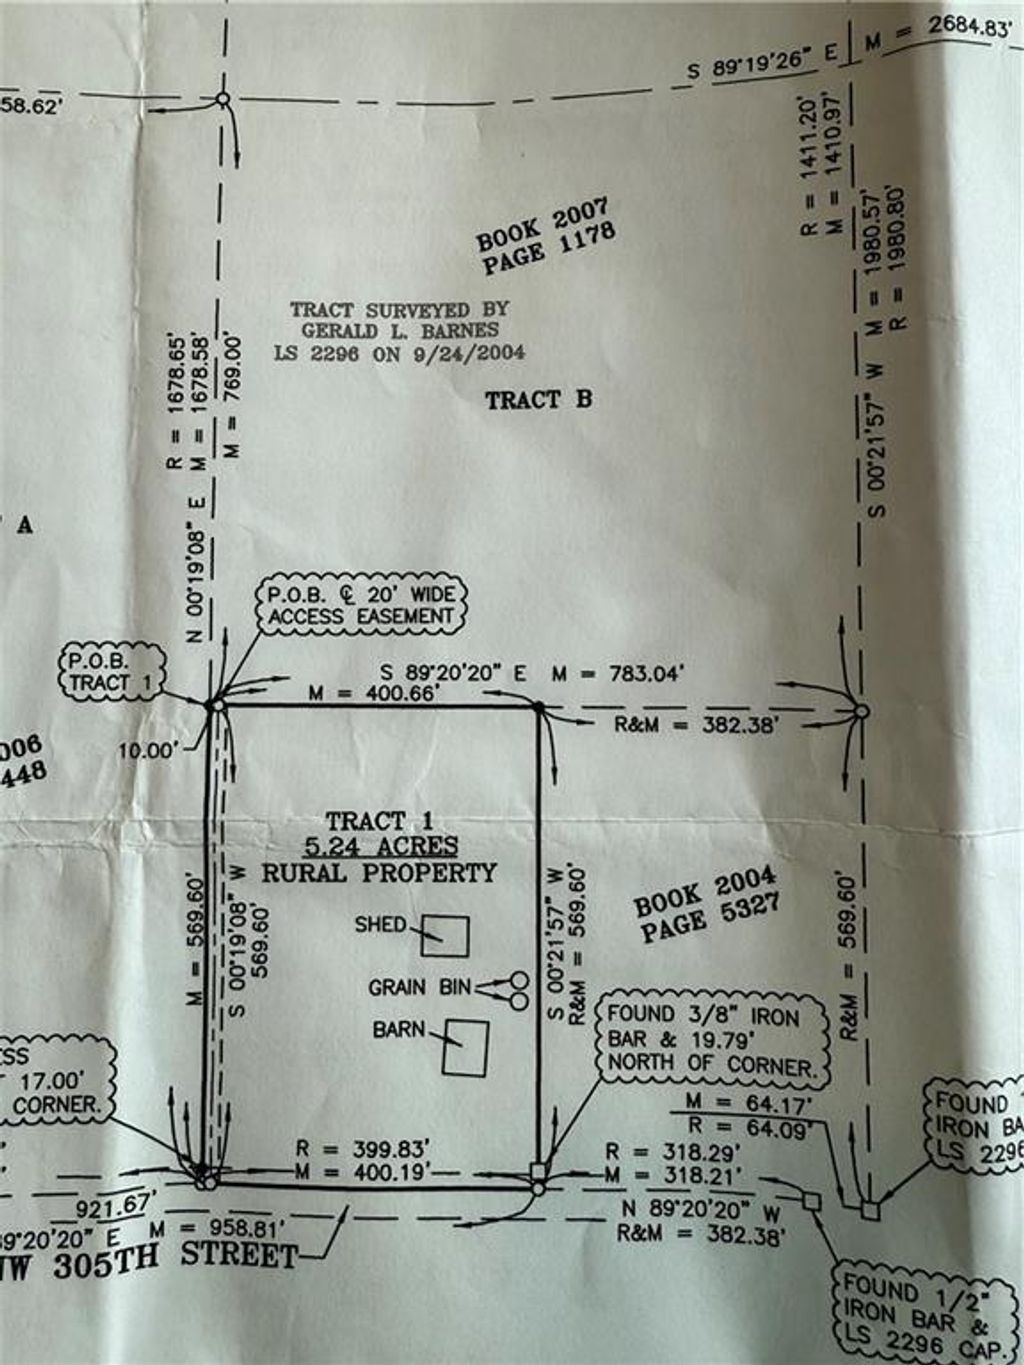 S 89°19'26" E M = 2684.83'
58.62'
R = 1411.20'
M = 1410.97'
S 00°21'57" W M = 1980.57'
R = 1980.80'
BOOK 2007
PAGE 1178
TRACT SURVEYED BY
GERALD L. BARNES
LS 2296 ON 9/24/2004
TRACT B
R = 1678.65'
N 00°19'08" E M = 1678.58'
M = 769.00'
A
P.O.B. ℄ 20' WIDE
ACCESS EASEMENT
P.O.B.
TRACT 1
S 89°20'20" E M = 783.04'
M = 400.66'
R&M = 382.38'
10.00'
006
448
TRACT 1
5.24 ACRES
RURAL PROPERTY
M = 569.60'
S 00°19'08" W
569.60'
SHED
GRAIN BIN
BARN
S 00°21'57" W
R&M = 569.60'
BOOK 2004
PAGE 5327
R&M = 569.60'
FOUND 3/8" IRON
BAR & 19.79'
NORTH OF CORNER.
ESS
17.00'
CORNER.
M = 64.17'
R = 64.09'
FOUND
IRON BA
LS 2296
R = 399.83'
M = 400.19'
R = 318.29'
M = 318.21'
921.67'
N 89°20'20" W
R&M = 382.38'
89°20'20" E M = 958.81'
NW 305TH STREET
FOUND 1/2"
IRON BAR &
LS 2296 CAP.